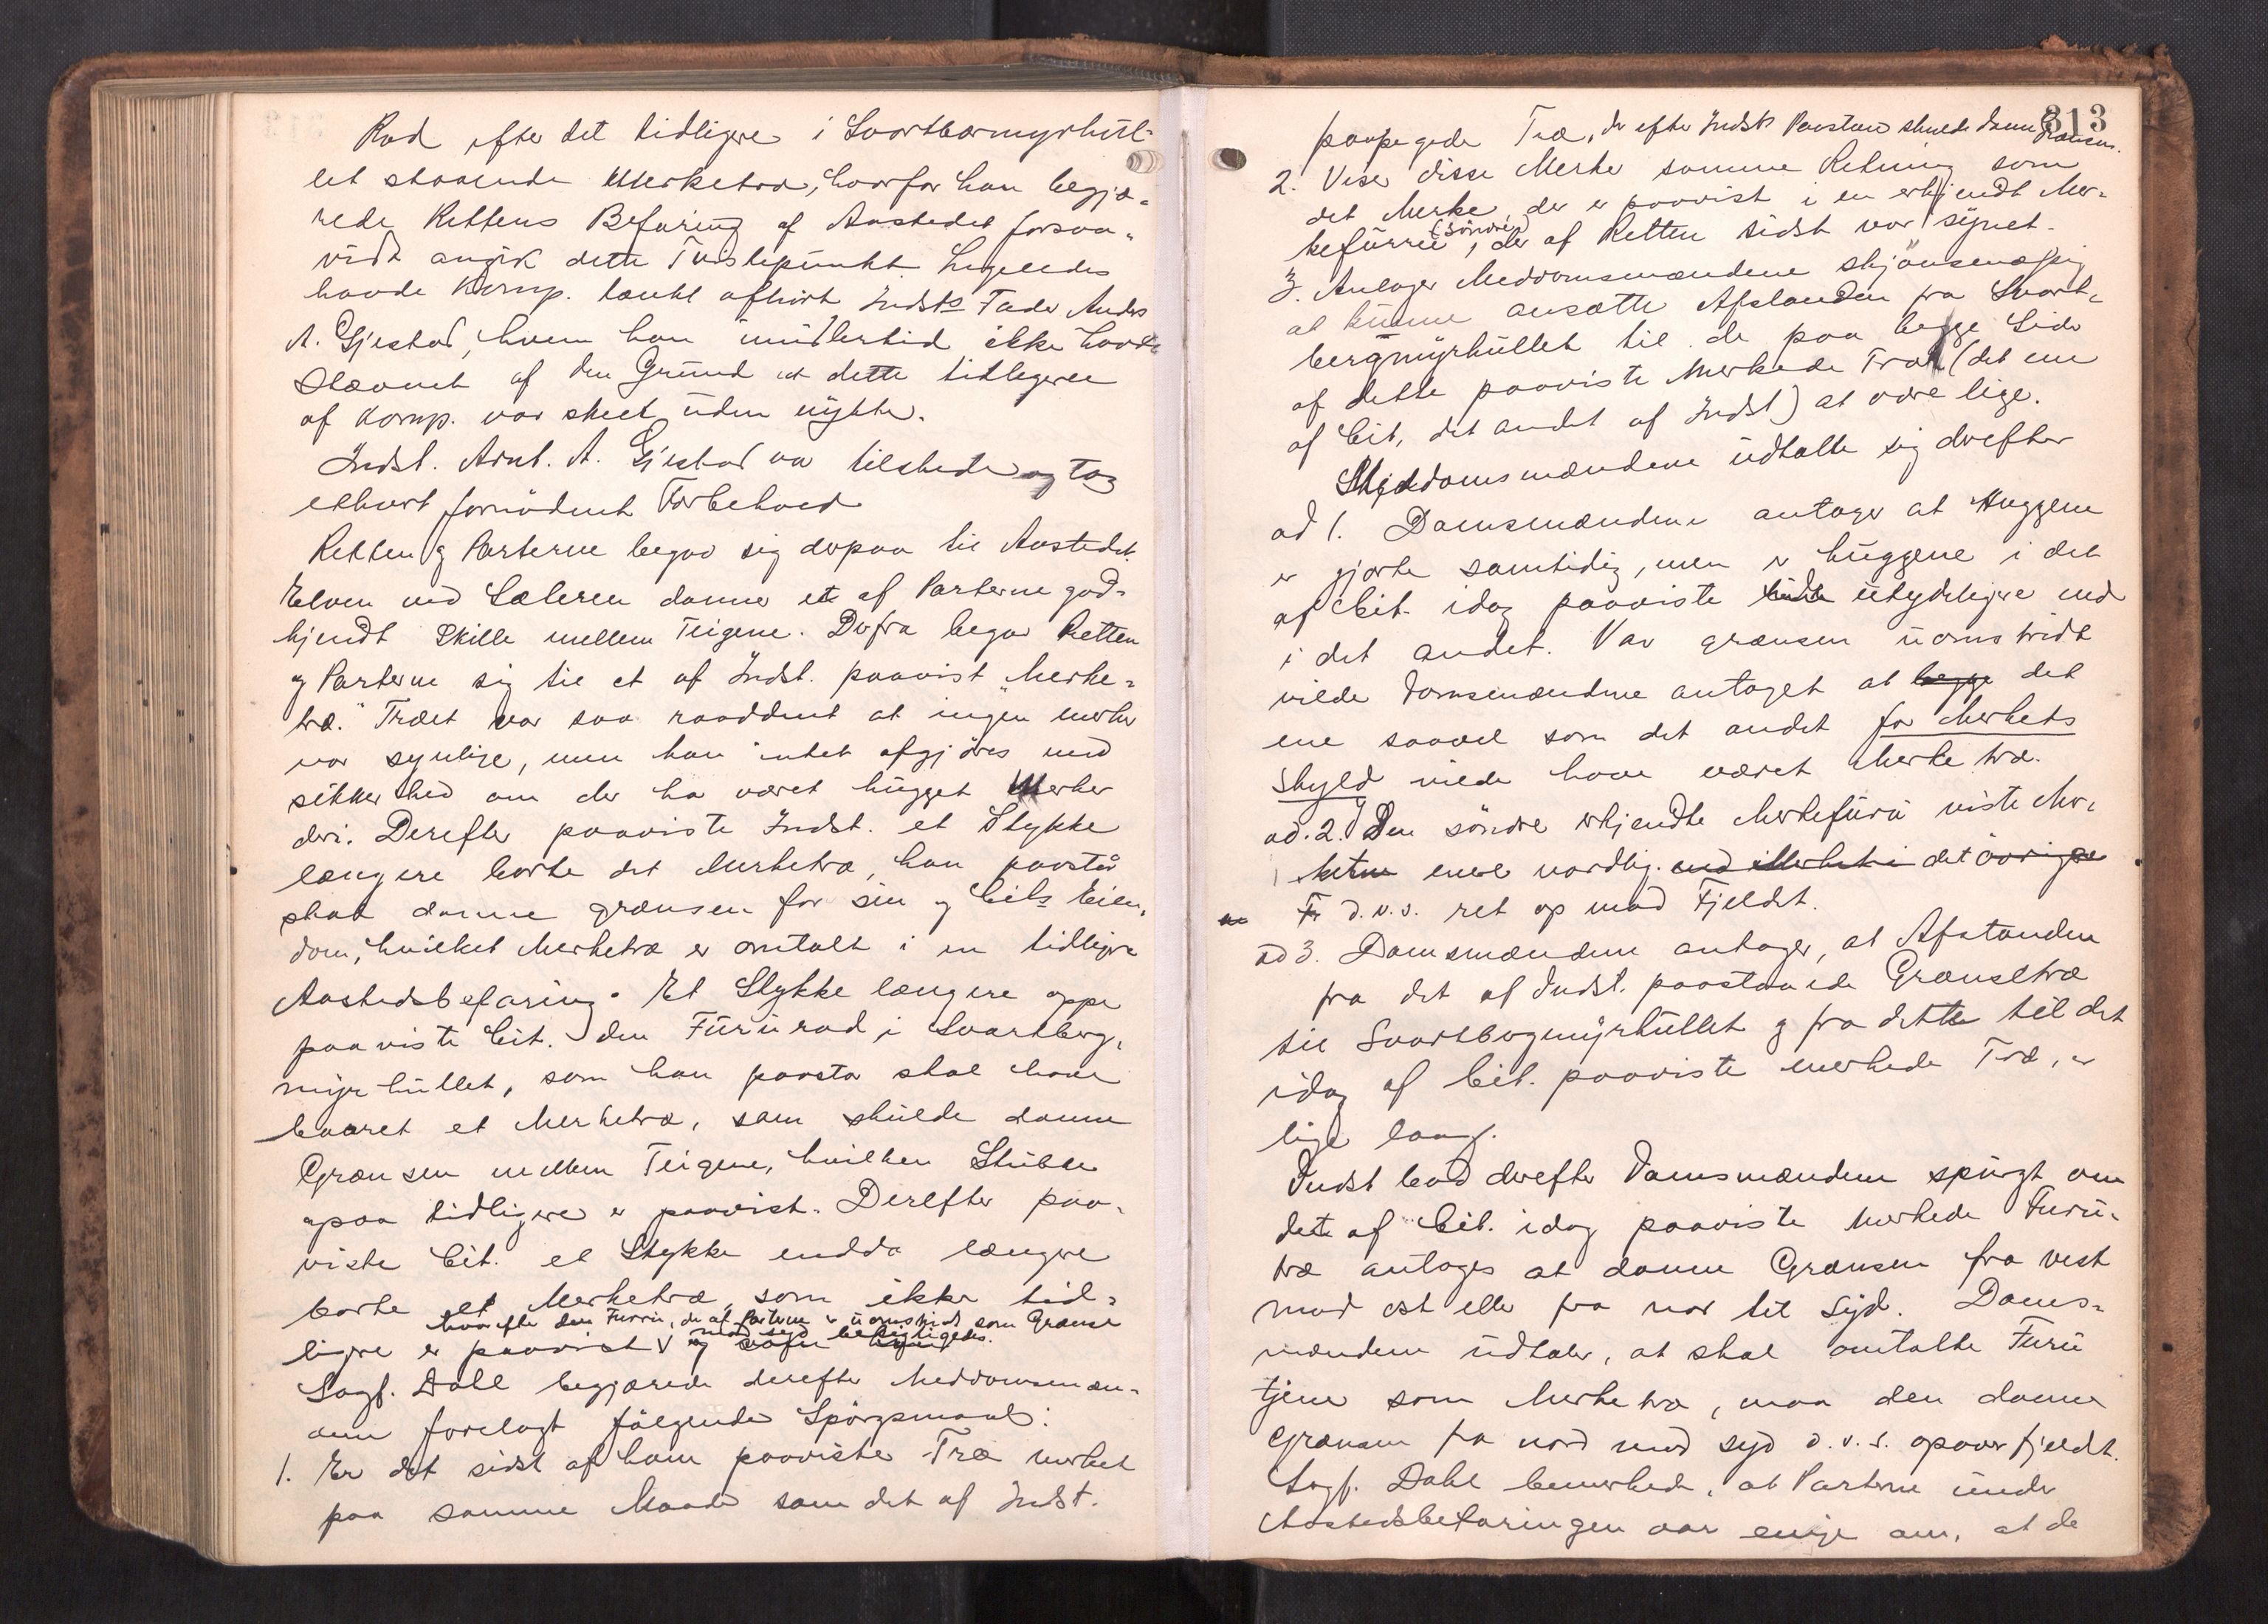 Rad efter det tidligere i Svartbærmyrhul-
let staaende Merketræ, hvorfor han begjæ-
rede Rettens Befaring af Aastedet forsaa-
vidt angik dette Tvistepunkt. Ligeledes
havde Komp. tænkt afhört Indsts Fader Anders
A. Gjestad, hvem han imidlertid ikke havde
stævnet af den Grund at dette tidligere
af Komp. var skeet uden nytte.
Indst. Arnt. A. Gjestad var tilstede og tog
ethvert fornödent Forbehold
Retten og Parterne begav sig derpaa til Aastedet.
Elven ved Sæteren danner et af Parterne god-
kjendt Skille mellem Teigene. Derfra begav Retten
og Parterne sig til et af Indst. paavist "Merke-
træ." Træet var saa raaddent at ingen merker
var synlige, men kan intet afgjöres med
sikkerhed om der ha været hugget Merker
deri. Derefter paaviste Indst. et Stykke
længere borte det Merketræ, han paastår
skal danne grænsen for sin og Cits Eien-
dom, hvilket Merketræ er omtalt i en tidligere
Aastedsbefaring. Et Stykke længere oppe
paaviste Cit. den Fururad i Svartberg-
myrhullet, som han paastar skal have
baaret et Merketræ, som skulde danne
Grænsen mellem Teigene, hvilken Stubbe
ogsaa tidligere er paavist. Derefter paa-
viste Cit. et Stykke endda længere
borte et Merketræ, som ikke tid-
hvorefter den Furru, der af Parterne er uomstridt som Grænse
ligere er paavist V og mod syd besigtigedes.
Sagf. Dahl begjærede derefter Meddomsmæn-
dene forelagt fölgende Spörgsmaal:
1. Er det sidst af ham paaviste Træ merket
paa samme Maade som det af Indst.
313
paapegede Træ, der efter Indsts Paastand skulde danne Grænsen.
2. Viser disse Merker samme Retning som
det Merke, der er paavist i en erkjendt Mer-
kefurru (söndre), der af Retten sidst var synet.
3. Antager Meddomsmændene skjönsmæssig
at kunne ansætte Afstanden fra Svart-
bergmyrhullet til de paa begge Sider
af dette paaviste Merkede Træer (det ene
af Cit, det andet af Indst) at være lige.
Meddomsmændene udtalte sig derefter
ad 1. Domsmændene antager at Huggene
er gjorte samtidig, men er huggene i det
af Cit. idag paaviste lidt utydeligere end
i det andet. Var grænsen uomstridt
vilde Domsmændene antaget at begge det
ene saavel som det andet for Merkets
Skyld vilde have været Merketræ.
ad. 2. Den söndre erkjendte Merkefuru viste Mer-
kerne mere nordlig. end Merket i det övrige
Fr d.v.s. ret op mod Fjeldet.
ad 3. Domsmændene antager, at Afstanden
fra det af Indst. paastaaede Grænsetræ
til Svartbergmyrhullet og fra dette til det
idag af Cit. paaviste merkede Træ, er
lige lang.
Indst bad derefter Domsmændene spurgt om
det af Cit. idag paaviste Merkede Furu-
træ antages at danne Grænsen fra vest
mod ost eller fra nor til Syd. Doms-
mændene udtaler, at skal omtalte Furu
tjene som Merketræ, maa den danne
Grænsen fra nord mod syd d.v.s. opover fjeldet.
Sagf. Dahl bemerkede, at Parterne under
Aastedsbefaringen var enige om, at de